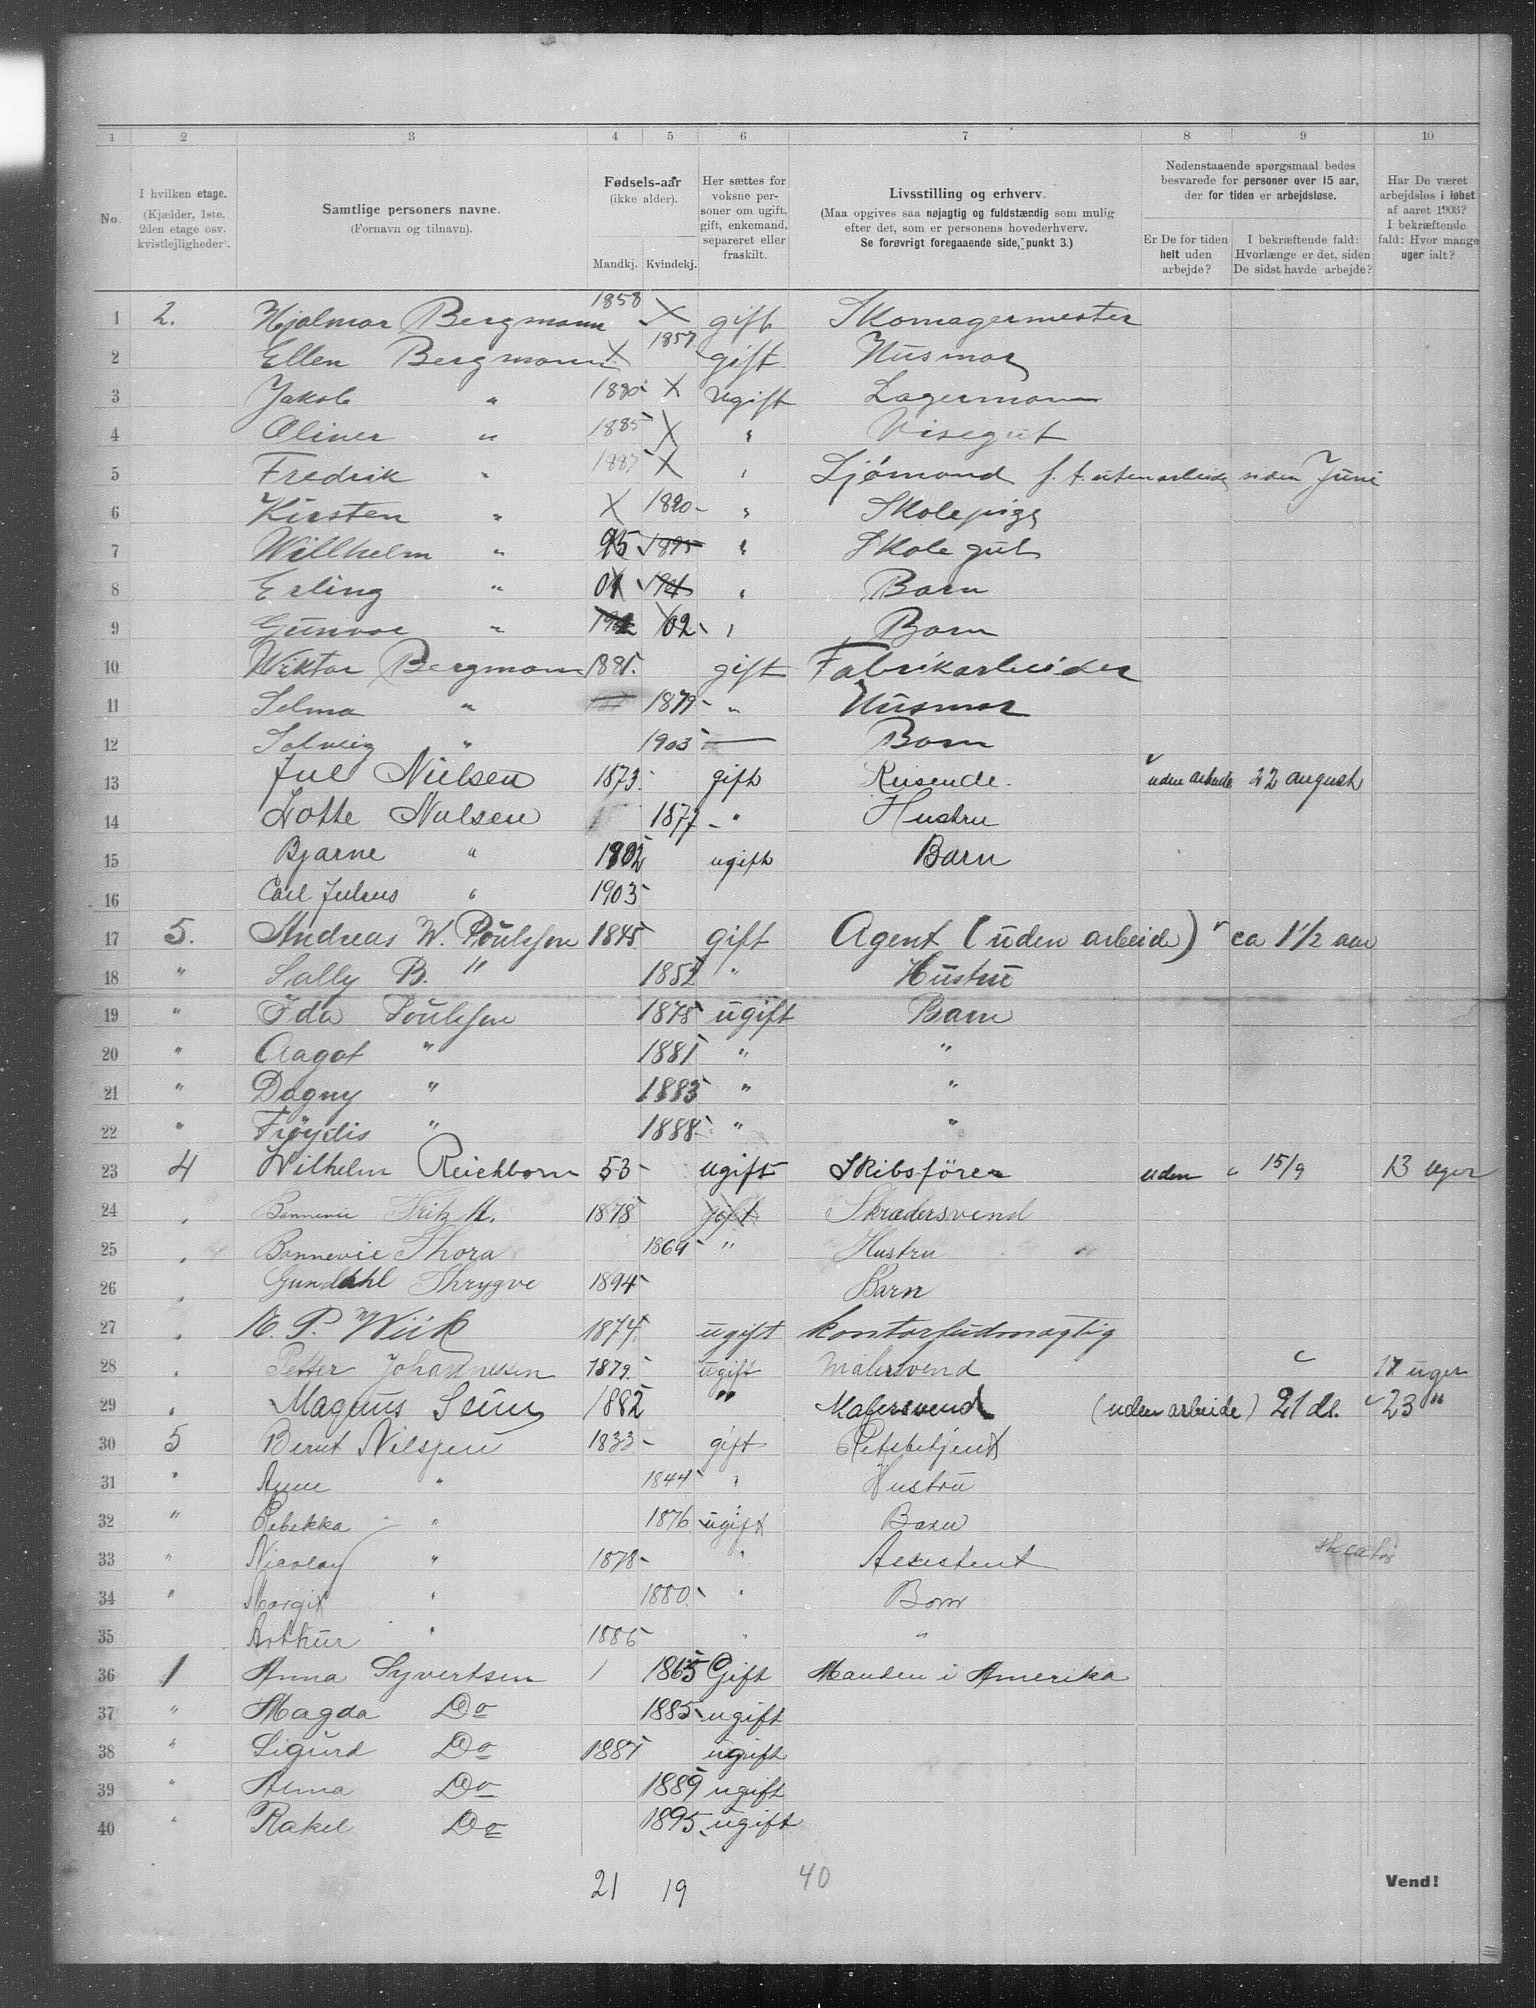 1 2 3 4 5 6 7 8 9 10
No.
I hvilken etage. (Kjælder, 1ste, 2den etage osv. kvistleiligheder).
Samtlige personers navne. (Fornavn og tilnavn).
Fødsels-aar (ikke alder).
Mandkj. Kvindekj.
Her sættes for voksne personer om ugift, gift, enkemand, separeret eller fraskilt.
Livsstilling og erhverv.
(Maa opgives saa nøjagtig og fuldstændig som mulig efter det, som er personens hovederhverv.
Se forøvrigt foregaaende side, punkt 3.)
Nedenstaaende spørgsmaal bedes besvarede for personer over 15 aar, der for tiden er arbejdsløse.
Er De for tiden helt uden arbejde?
I bekræftende fald: Hvorlænge er det, siden De sidst havde arbejde?
Har De været arbejdsløs i løbet af aaret 1903? I bekræftende fald: Hvor mange uger ialt?
1 2. Hjalmar Bergmann 1858 X gift Skomagermester
2 Ellen Bergmann X 1857 gift Husmor
3 Jakob " 1880 X Ugift Lagermann
4 Oliner " 1885 X " Visegut
5 Fredrik " 1887 X " Sjömand f. t. uten arbeide siden Juni
6 Kirsten " X 1890 " Skolepige
7 Willhelm " 95 1895 " Skolegut
8 Erling " 01 " Barn
9 Gunvor " 02 " Barn
10 Wiktor Bergmann 1881. gift Fabrikarbeider
11 Selma " 1879 " Husmor
12 Solveig " 1903 — Barn
13 Jul Nielsen 1873 gift Reisende. uden arbeide 22 august
14 Lotte Nielsen 1877 " Hustru
15 Bjarne " 1902 ugift Barn
16 Carl Julius " 1903
17 5. Andreas W. Poulsson 1845 gift Agent (uden arbeide) ca 1 1/2 aar
18 " Sally B. " 1852 " Hustru
19 " Ida Poulsson 1878 ugift Barn
20 " Aagot " 1881 " "
21 " Dagny " 1883 " "
22 " Frøydis " 1888 " "
23 4 Wilhelm Reichborn 53 ugift Skibsförer uden " 15/9 13 uger
24 " Bonnevie Fritz M. 1878 gift Skrædersvend
25 " Bonnevie Thora 1869 " Hustru
26 " Gundahl Thrygve 1894 Barn
27 " K. P. Wiik 1874 ugift kontorfudmægtig
28 " Petter Johannessen 1879 ugift Malersvend 17 uger
29 " Magnus 1882 " Malersvend (uden arbeide) 21 ds. 23 "
30 5 Bernt Nilssen 1833 gift Retsbetjent
31 " Anne " 1844 " Hustru
32 " Rebekka " 1876 ugift Barn
33 " Nicolay " 1878 " Assistent
34 " Margit " 1880 " Barn
35 Arthur " 1886 " "
36 1 Anna Syvertsen 1865 Gift Manden i Amerika
37 " Magda Do 1885 ugift
38 " Sigurd Do 1887 ugift
39 " Anna Do 1889 ugift
40 " Rakel Do 1895 ugift
21 19 40
Vend!